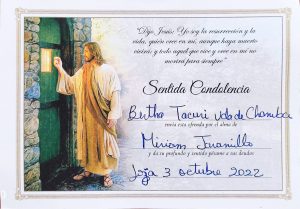 "Dijo, Jesús: Yo soy la resurrección y la
vida, quien cree en mí, aunque haya muerto
vivirá; y todo aquel que vive y cree en mí no
morirá para siempre"
Sentida Condolencia
Bertha Tacuri vda de Chamba
envía esta ofrenda por el alma de
Miriam Jaramillo
y da su profundo y sentido pésame a sus deudos
Loja 3 octubre 2022